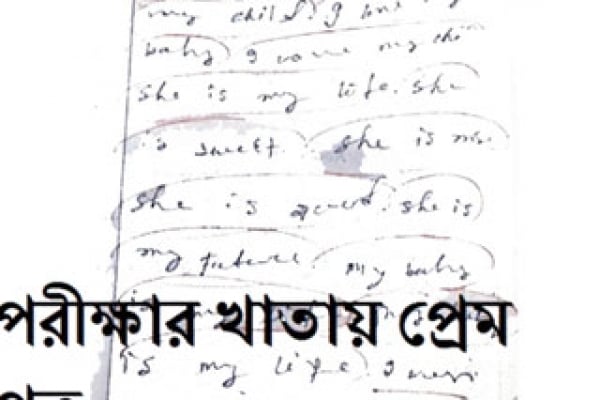 my child. I love my
baby I love my chi
she is my life. she
is sweet. she is nic
she is good. she is
my future. my baby
পরীক্ষার খাতায় প্রেম
is my life I
পত্র